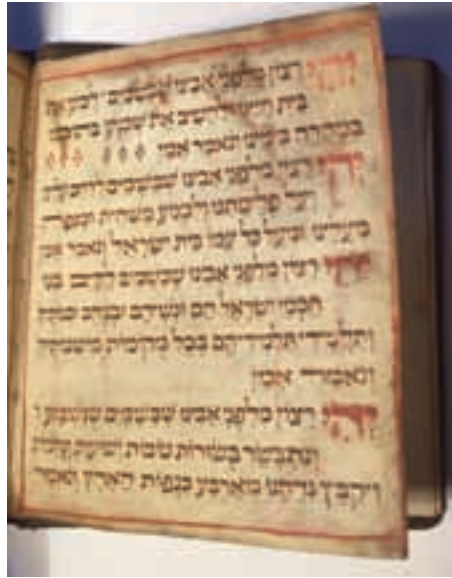 יהי רצון מלפני אבינו שבשמים לכונן את
בית חיינו ולהשיב את בתוכנו
במהרה בימינו ונאמר אמן
יהי רצון מלפני אבינו שבשמים לרחם עלינו
ועל פליטתנו ולמנוע משחית ומגפה
מעלינו ומעל כל עמו בית ישראל ונאמר אמן
יהי רצון מלפני אבינו שבשמים לקיים בנו
חכמי ישראל הם ונשיהם ובניהם
ותלמידי תלמידיהם בכל מקומות
ונאמר אמן
יהי רצון מלפני אבינו שבשמים שנשמע ו
ונתבשר בשורות טובות
ויקבץ נדחנו מארבע כנפות הארץ ונאמר